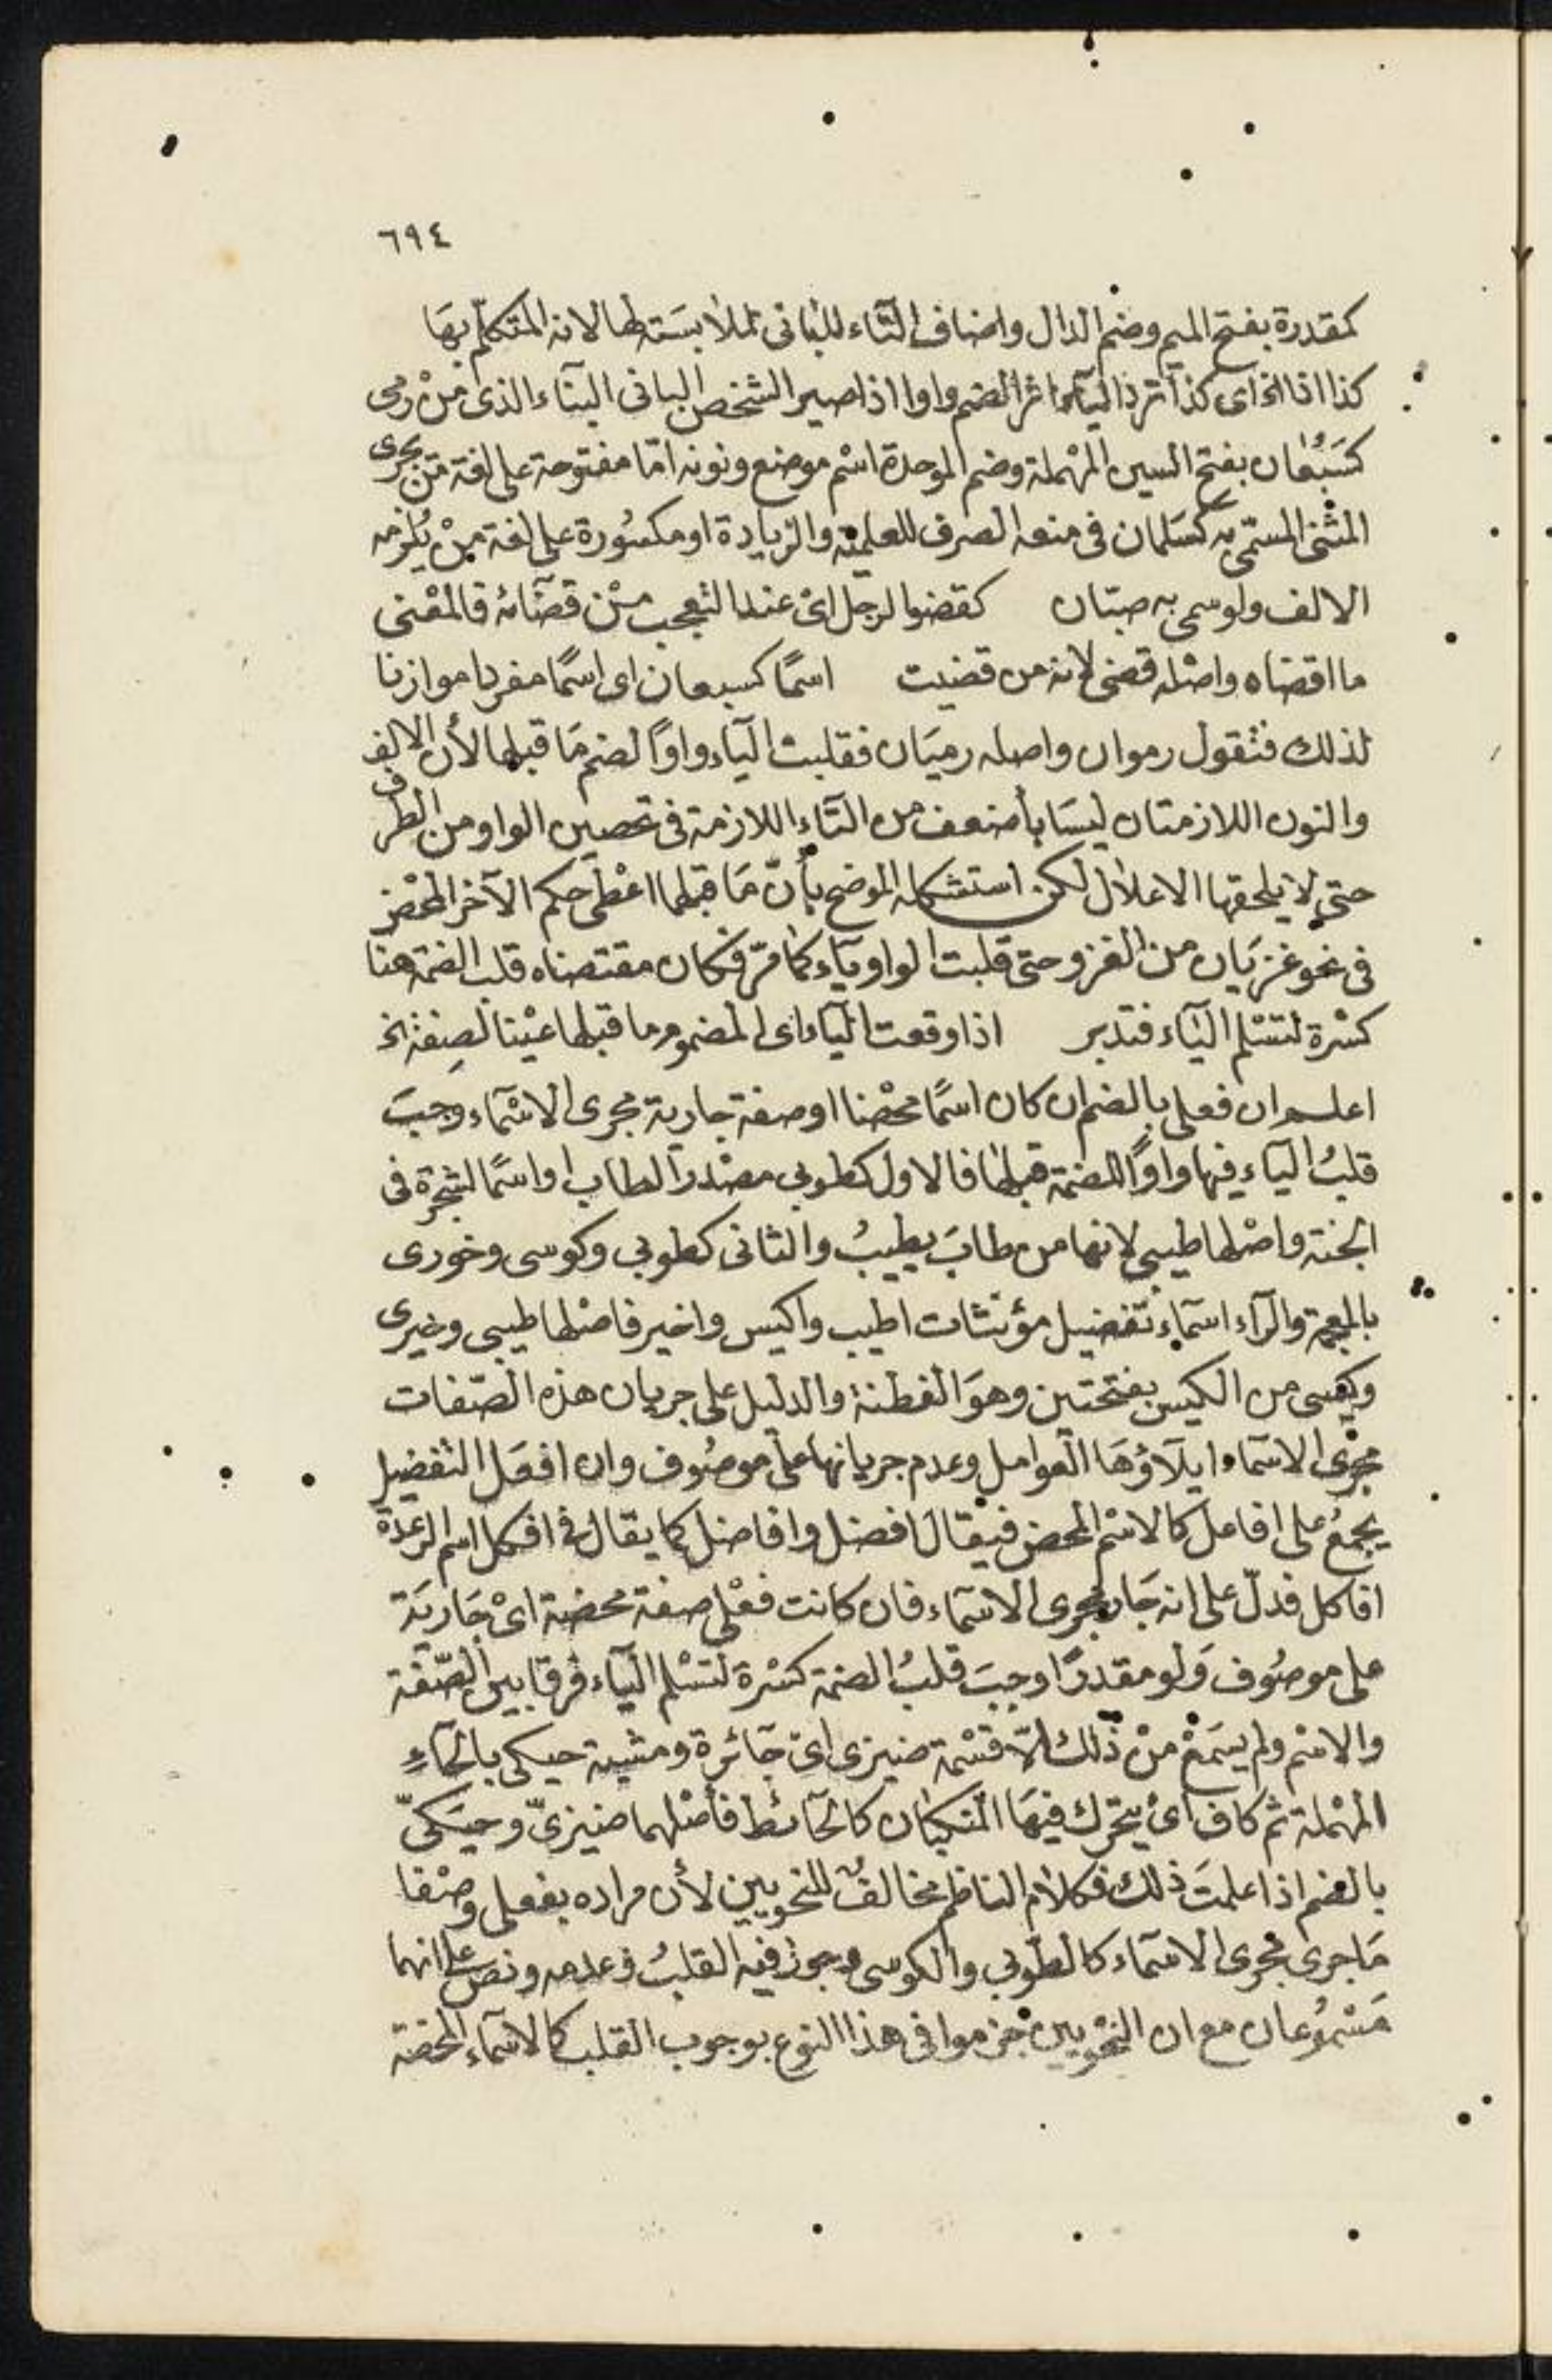 ٦٩٤
كمقدرة بفتح الميم وضم الدال واضاف التاء للبانى لملابسته لها لانه المتكلم بها
كذا اذا الخ اى كذا ترد الياء اثر الضم واوا اذا صير الشخص البانى البناء الذى من رمى
كسَبُعان بفتح السين المهملة وضم الموحدة اسم موضع ونونه امّا مفتوحة على لغة من يجرى
المثنى المسمى به كسَلمان فى منعه الصرف للعلمية والزيادة او مكسورة على لغة من يُلزمه
الالف ولو سمى به صبّان كقضوا لرجل اى عند التعجب من قضائه فالمعنى
ما اقضاه واصله قضى لانه من قضيت اسمًا كسبعان اى اسمًا مفردا موازنا
لذلك فتقول رموان واصله رميَان فقلبت الياء واوًا لضم مَا قبلها لأن الالف
والنون اللازمتان ليسَا بأضعف من التاء اللازمة فى تحصين الواو من الطرف
حتى لا يلحقها الاعلال لكن استشكله الموضح بأنّ مَا قبلها اعْطى حكم الآخر المحض
فى نحو غزيَان من الغزو حتى قلبت الواو ياء كما مرّ فكان مقتضاه قلب الضمة هنا
كسْرة لتسْلم الياء فتدبر اذا وقعت الياء اى المضموم ما قبلها عيْنا لصفة الخ
اعلم ان فعلى بالضم ان كان اسمًا محضا او صفة جارية مجرى الاسْماء وَجبَ
قلبُ الياء فيها واوًا للضمة قبلها فالاول كطوبى مصْدرا لطاب او اسمًا لشجرة فى
الجنة واصْلها طيبى لانها من طابَ يطيبُ والثانى كطوبى وكوسى وخورى
بالمعجمة والرّاء اسماء تفضيل مؤنثات اطيب واكيس واخير فاصْلها طيبى وخيرى
وكيسى من الكيس بفتحتين وهوَ الفطنة والدليل على جريان هذه الصّفات
مجرى الاسماء ايلاؤهَا العوامل وعدم جريانها على موصُوف وان افعل التفضيل
يجمعُ على افاعل كالاسْم المحض فيقال افضل وافاضل كما يقال فى افكل اسم الرعدة
افاكل فدلّ على انه جَار مجرى الاسماء فان كانت فعْلى صفة محضة اىْ جَاريَة
على موصُوف وَلو مقدرًا وجبَ قلبُ الضمة كسْرة لتسْلم الياء فرقا بين الصّفة
والاسْم ولم يسمَعْ منْ ذلك الّا قسْمة ضيزى اىْ جَائرة ومشية حيكى بالحاء
المهْملة ثم كاف اىْ يتحرك فيهَا المنكبان كالحائط فأصْلهما ضيزىّ وحيَكىّ
بالضم اذا علمتَ ذلك فكلام الناظم مخالفٌ للنحويين لأن مراده بفعلى وصْفا
مَا جرى مجرى الاسماء كالطوبى والكوسى وجوز فيه القلبُ وعدمه ونص على انهما
مَسْموُعان مع ان النحْويين جزموا فى هذا النوع بوجوب القلب كالاسماء المحضة